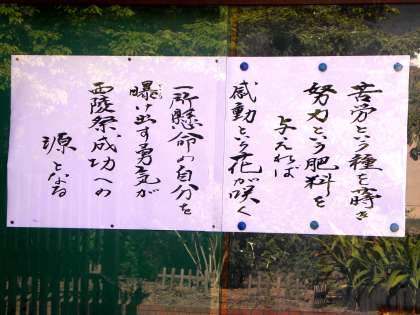 苦労という種を蒔き
努力という肥料を
与えれば
感動という花が咲く
一所懸命の自分を
曝け出す勇気が
西陵祭成功への
源となる